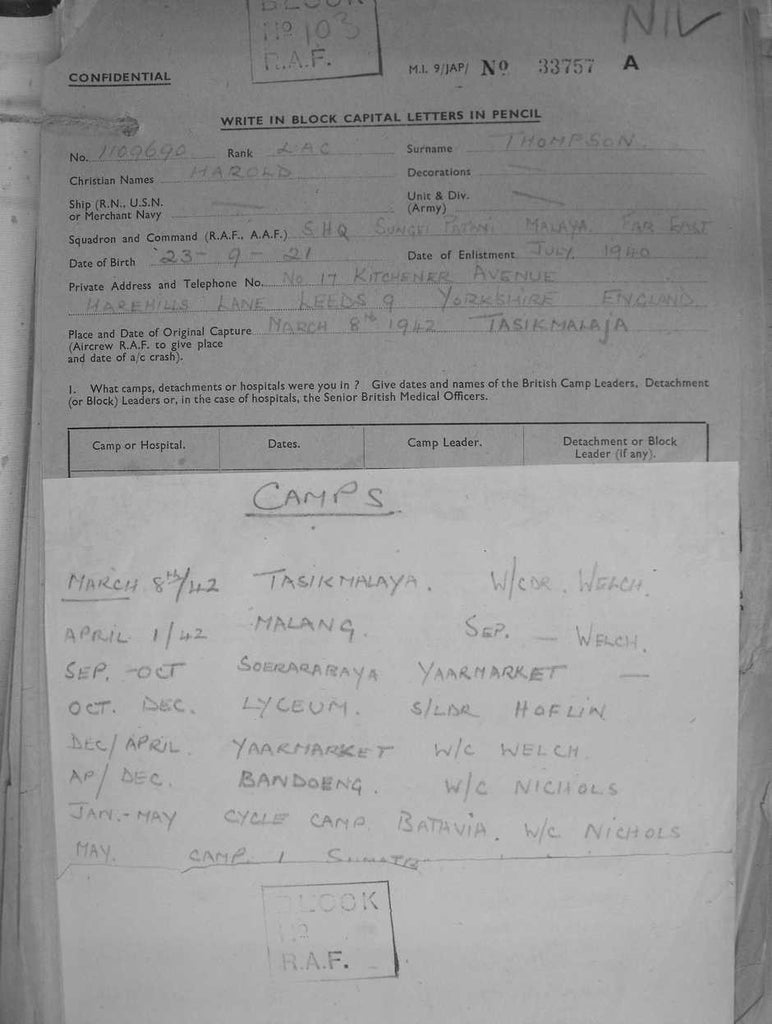 BLOCK
Nº 103
R.A.F.
NIL
CONFIDENTIAL
M.I. 9/JAP/ Nº 33757 A
WRITE IN BLOCK CAPITAL LETTERS IN PENCIL
No. 1109690 Rank LAC Surname THOMPSON
Christian Names HAROLD Decorations
Ship (R.N., U.S.N. or Merchant Navy
Unit & Div. (Army)
Squadron and Command (R.A.F., A.A.F.) SHQ SUNGEI PATANI MALAYA FAR EAST
Date of Birth 23-9-21 Date of Enlistment JULY 1940
Private Address and Telephone No. No 17 KITCHENER AVENUE
HAREHILLS LANE LEEDS 9 YORKSHIRE ENGLAND
Place and Date of Original Capture MARCH 8th 1942 TASIKMALAJA
(Aircrew R.A.F. to give place
and date of a/c crash).
1. What camps, detachments or hospitals were you in ? Give dates and names of the British Camp Leaders, Detachment
(or Block) Leaders or, in the case of hospitals, the Senior British Medical Officers.
Camp or Hospital. Dates. Camp Leader. Detachment or Block Leader (if any).
CAMPS
MARCH 8th/42 TASIKMALAYA. W/CDR. WELCH.
APRIL 1/42 MALANG. SEP. — WELCH.
SEP. -OCT SOERARARAYA YAARMARKET —
OCT. DEC. LYCEUM. S/LDR HOFLIN
DEC/APRIL. YAARMARKET W/C WELCH
AP/DEC. BANDOENG. W/C NICHOLS
JAN.-MAY CYCLE CAMP. BATAVIA. W/C NICHOLS
MAY. CAMP 1 SUMATRA
BLOCK
Nº
R.A.F.